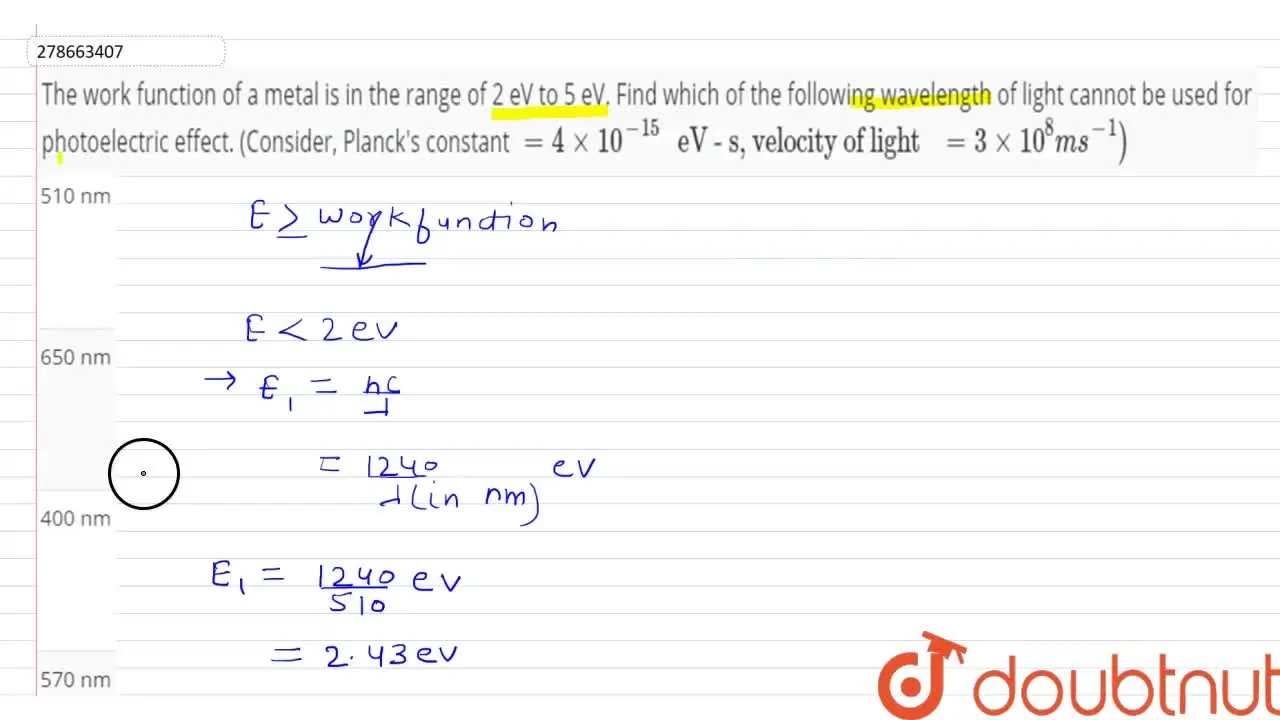 278663407
The work function of a metal is in the range of 2 eV to 5 eV. Find which of the following wavelength of light cannot be used for
photoelectric effect. (Consider, Planck's constant = 4 × 10⁻¹⁵ eV - s, velocity of light = 3 × 10⁸ms⁻¹)
510 nm
E ≥ workfunction
E < 2 ev
650 nm
→ E₁ = hc/λ
= 1240/λ(in nm) ev
400 nm
E₁ = 1240/510 ev
= 2.43 ev
570 nm
doubtnut